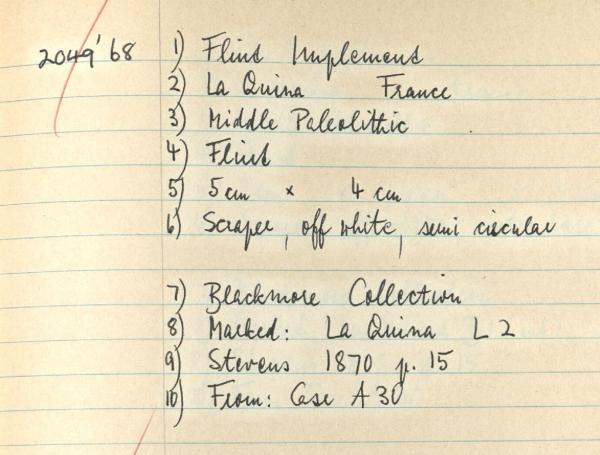 2049'68 1) Flint Implement
2) La Quina France
3) Middle Paleolithic
4) Flint
5) 5 cm x 4 cm
6) Scraper, off white, semi circular
7) Blackmore Collection
8) Marked: La Quina L 2
9) Stevens 1870 p. 15
10) From: Case A 30